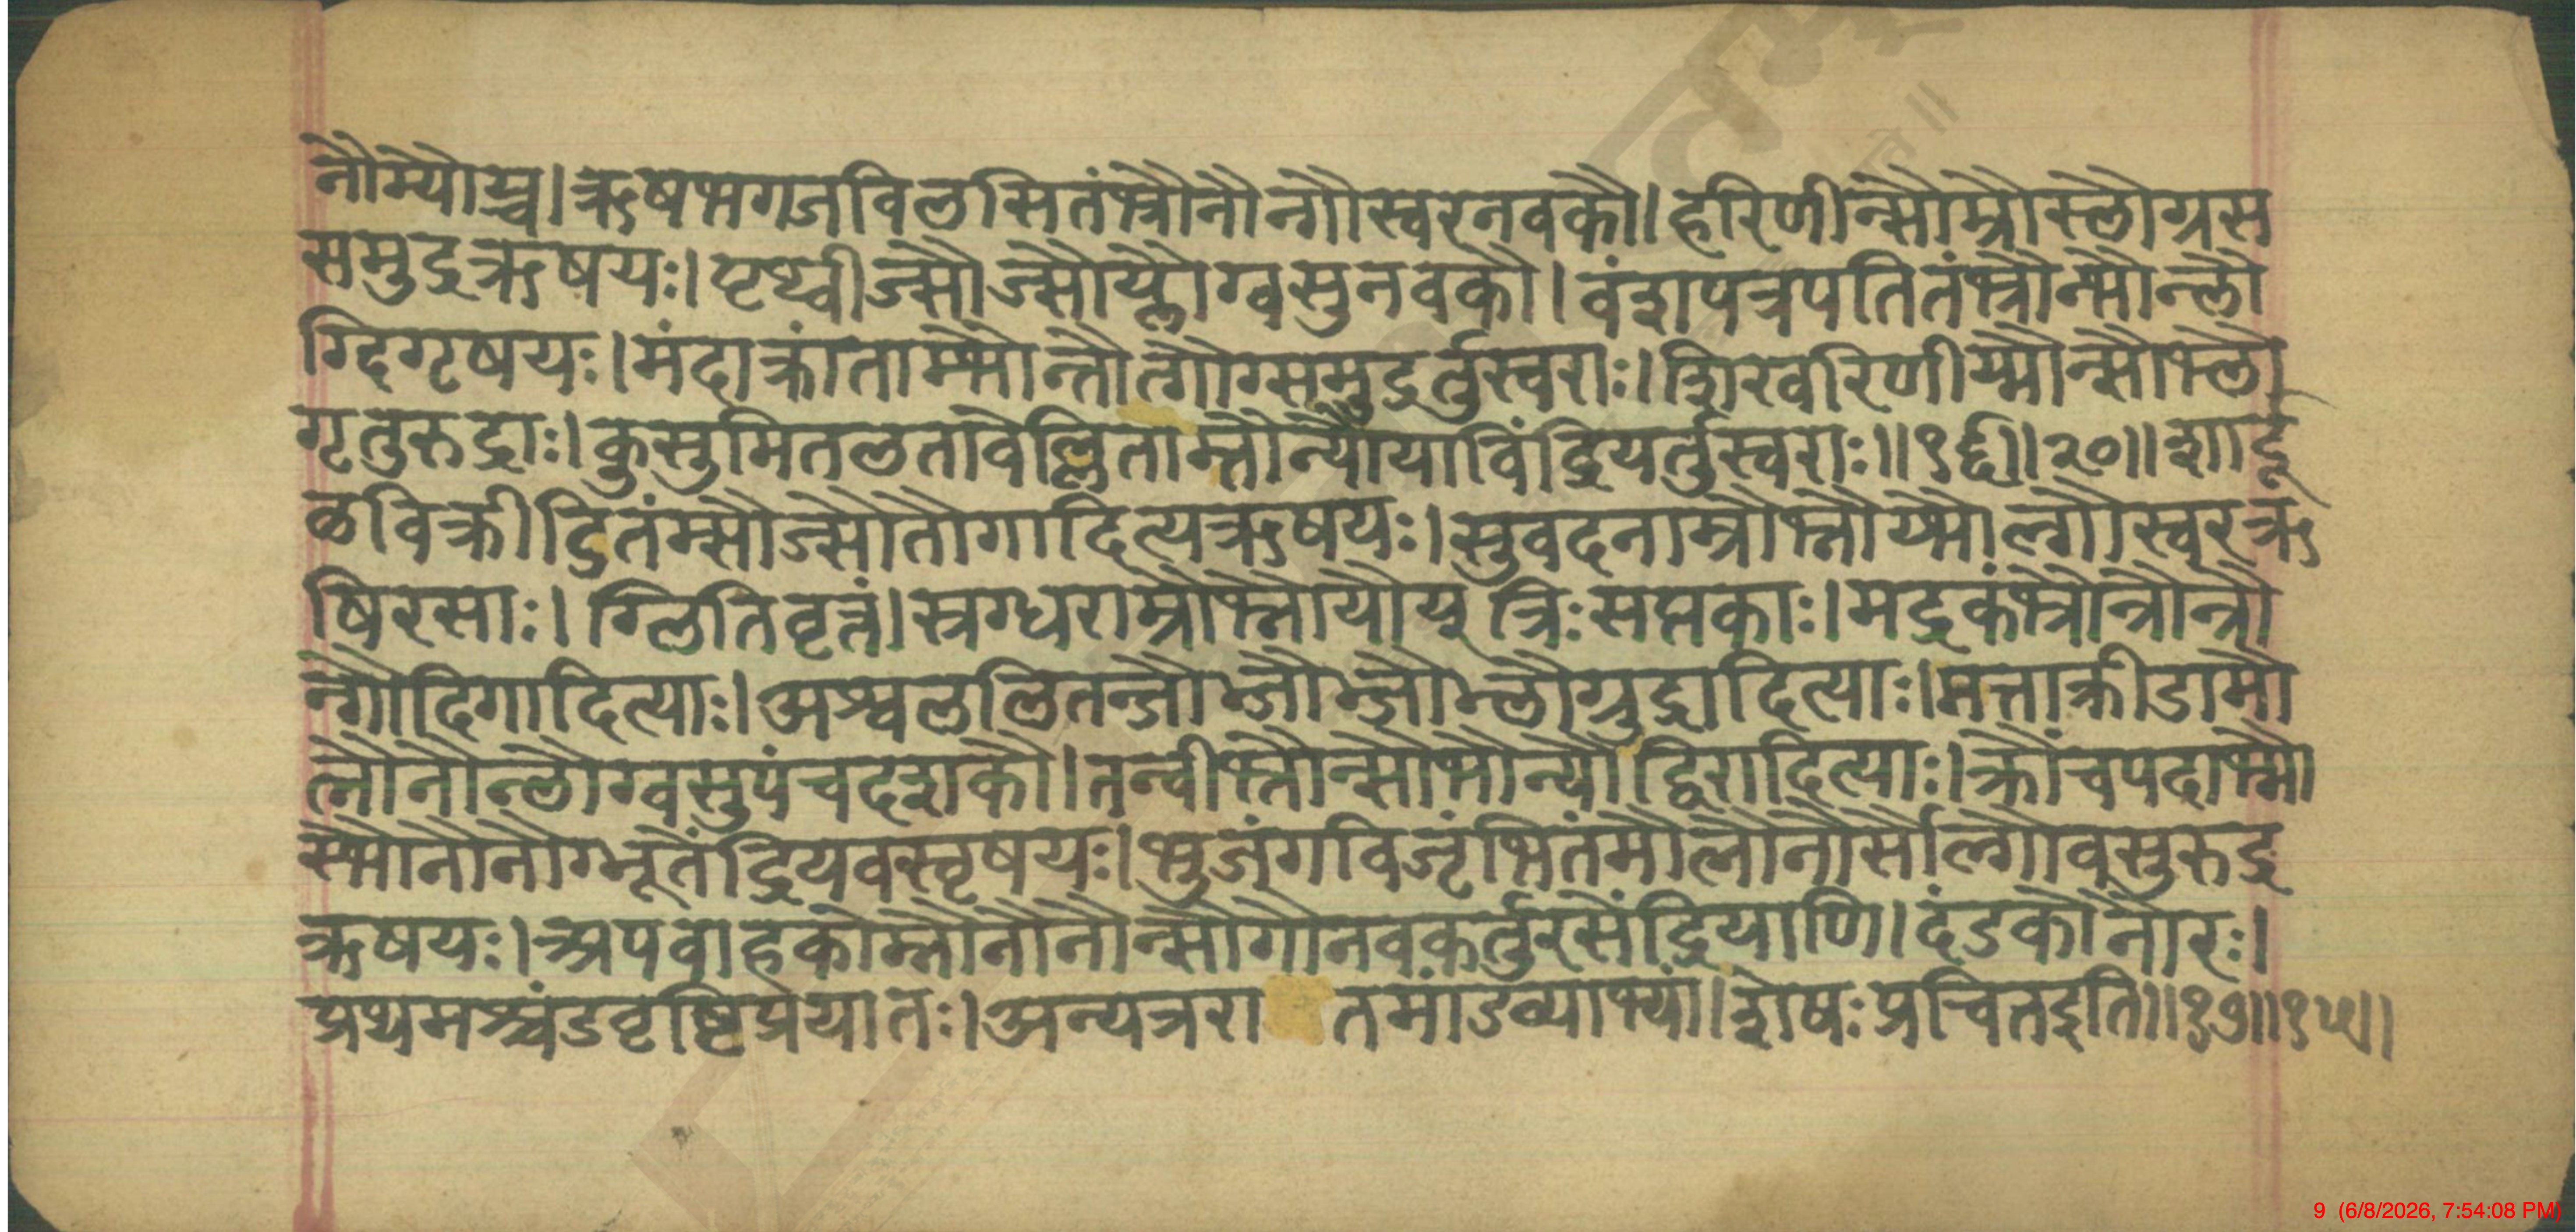 नौम्यौय्च।ऋषभगजविलसितंभ्रौनौन्गौस्वरनवकौ।हरिणीन्सौम्रौस्लौग्रस
समुद्रऋषयः।पृथ्वीज्सौज्सौय्लौग्वसुनवकौ।वंशपत्रपतितंभ्रौन्भौन्लौ
ग्दिगृषयः।मंदाक्रांताम्भौन्तौत्गौग्समुद्रर्तुस्वराः।शिखरिणीय्मौन्सौभ्लौ
गृतुरुद्राः।कुसुमितलतावेल्लिताम्तौन्यौयाविंद्रियर्तुस्वराः॥१६॥२०॥शार्दू
ळविक्रीडितंम्सौज्सौतौगादित्यऋषयः।सुवदनाम्रौभ्नौय्भौल्गौस्वरऋ
षिरसाः।ग्लितिवृत्तं।स्रग्धराम्रौभ्नौयौय् त्रिःसप्तकाः।मद्रकंभ्रौन्रौन्रौ
न्गौदिगादित्याः।अश्वललितन्जौभ्जौभ्जौभ्लौग्रुद्रादित्याः।मत्ताक्रीडामौ
त्नौनौन्लौग्वसुपंचदशकौ।तन्वीभ्तौन्सौभौन्यौद्विरादित्याः।क्रौंचपदाभ्मौ
स्भौनौनौग्भूतेंद्रियवस्वृषयः।भुजंगविजृंभितंमौत्नौनौर्सौल्गौवसुरुद्र
ऋषयः।अपवाहकोम्नौनौनौन्सौगौनवकर्तुरसेंद्रियाणि।दंडकोनौरः।
प्रथमश्चंडवृष्टिप्रयातः।अन्यत्ररा तमांडव्याभ्यां।शेषःप्रचितइति॥१७॥१५॥
9 (6/8/2026, 7:54:08 PM)